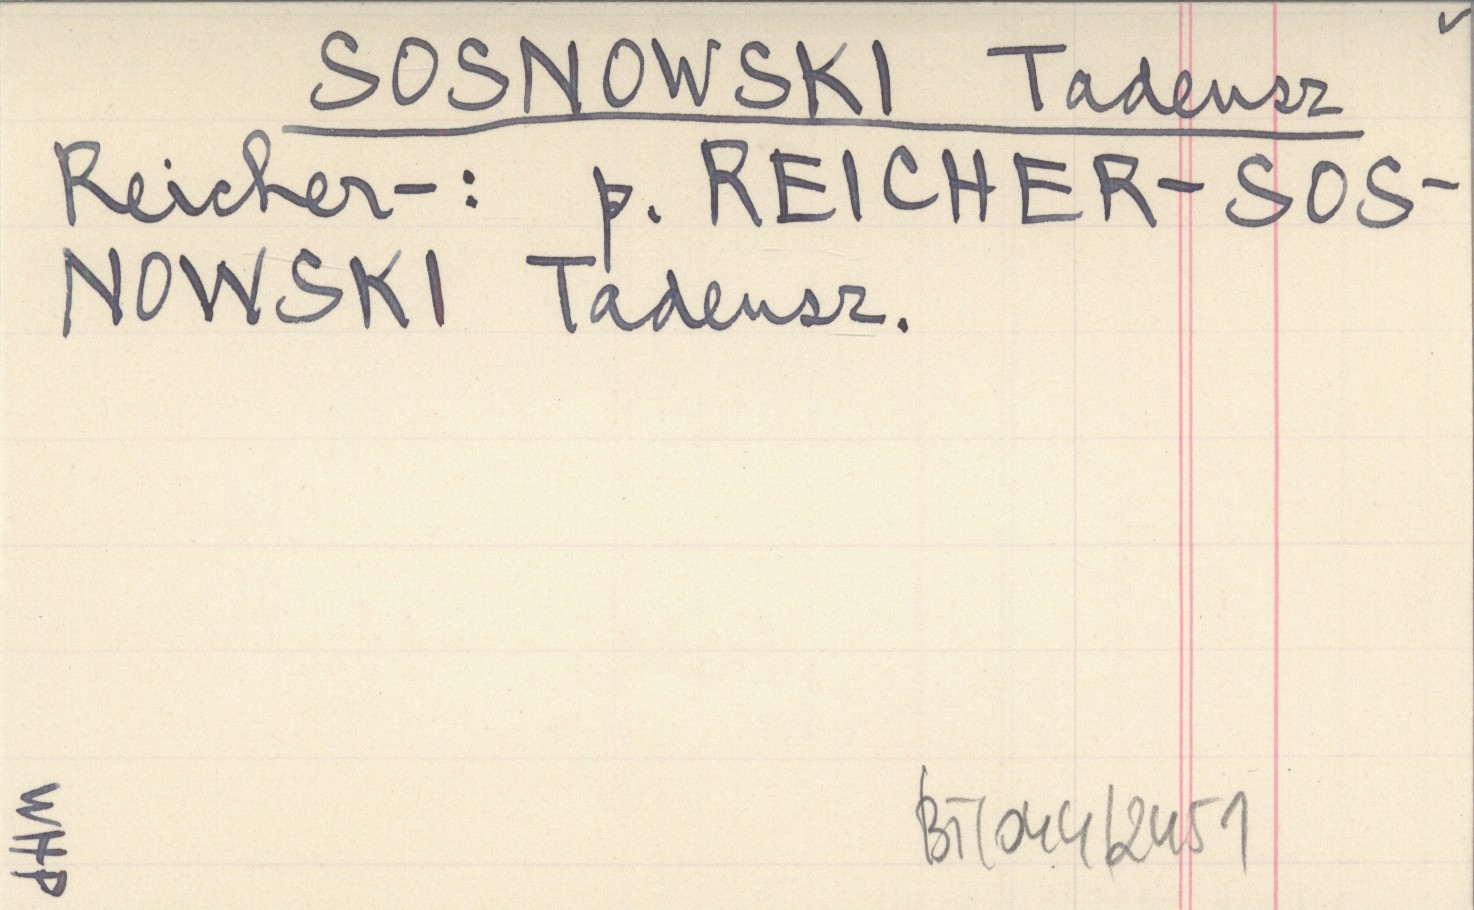 SOSNOWSKI Tadeusz
Reicher-: p. REICHER-SOS-
NOWSKI Tadeusz.
WHP
BI/044/2451